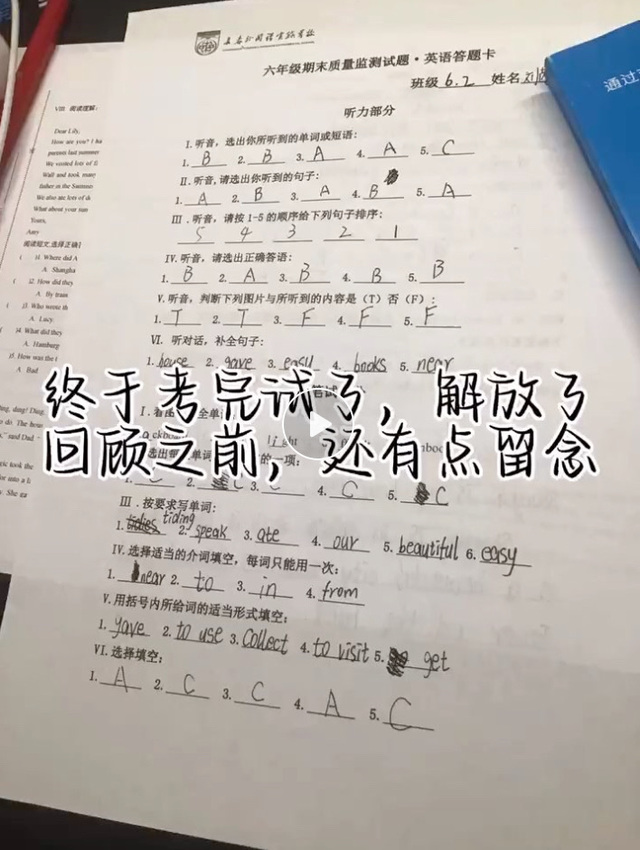 六年级期末质量监测试题·英语答题卡
班级 6.2 姓名
听力部分
I. 听音，选出你所听到的单词或短语：
1. B 2. B 3. A 4. A 5. C
II. 听音，请选出你听到的句子：
1. A 2. B 3. A 4. B 5. A
III. 听音，请按 1-5 的顺序给下列句子排序：
5 4 3 2 1
IV. 听音，请选出正确答语：
1. B 2. A 3. B 4. B 5. B
V. 听音，判断下列图片与所听到的内容是（T）否（F）：
1. T 2. T 3. F 4. F 5. F
VI. 听对话，补全句子：
1. house 2. gave 3. easy 4. books 5. near
终于考完试了，解放了
回顾之前，还有点留念
4. C 5. C
III. 按要求写单词：
1. tidies tiding 2. speak 3. ate 4. our 5. beautiful 6. easy
IV. 选择适当的介词填空，每词只能用一次：
1. near 2. to 3. in 4. from
V. 用括号内所给词的适当形式填空：
1. gave 2. to use 3. collect 4. to visit 5. get
VI. 选择填空：
1. A 2. C 3. C 4. A 5. C
VIII. 阅读理解：
Dear Lily,
How are you? I ha
parents last summer
We visited lots of
Wall and took many
father in the Summe
We also ate lots of
What about your sum
Yours,
Amy
阅读短文,选择正确
1. Where did A
A. Shangha
2. How did they
A. By train
3. Who went th
A. Lucy
4. What did they
A. Hamburg
5. How was the t
A. Bad
通过